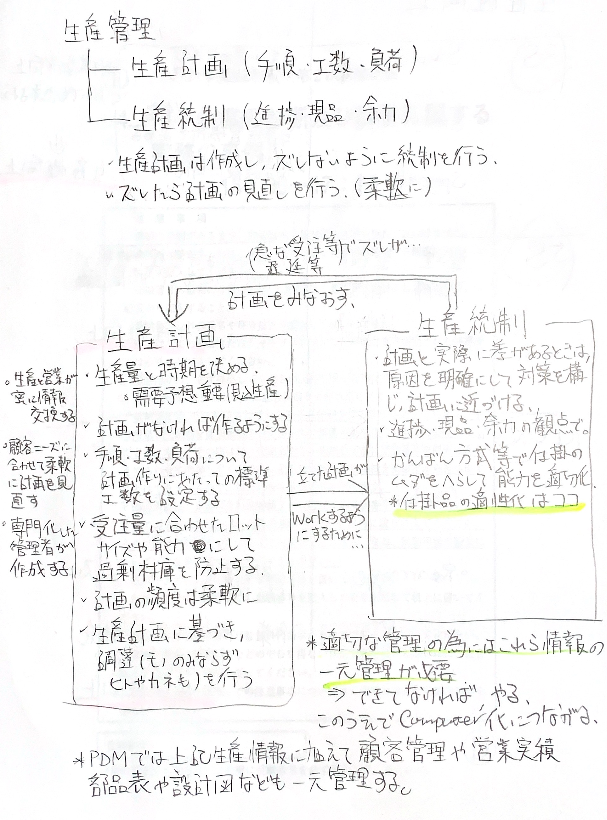 生産管理
生産計画（手順・工数・負荷）
生産統制（進捗・現品・余力）
・生産計画は作成し、ズレないように統制を行う。
・ズレたら計画の見直しを行う。（柔軟に）
急な受注等でズレが…
遅延等
計画をみなおす。
生産計画
・生産量と時期を決める。
○需要予想重要（見込生産）
・計画がなければ作るようにする
・手順・工数・負荷について
計画作りにあたっての標準
工数を設定する
・受注量に合わせたロット
サイズや能力にして
過剰材庫を防止する。
・計画の頻度は柔軟に
・生産計画に基づき、
調達（モノのみならず
ヒトやカネも）を行う
○生産と営業が
密に情報
交換する
○顧客ニーズに
合わせて柔軟
に計画を見
直す
○専門化した
管理者が
作成する
立てた計画が
Workするよう
にするために…
生産統制
・計画と実際に差があるときは、
原因を明確にして対策を構
じ、計画に近づける。
・進捗・現品・余力の観点で。
・かんばん方式等で仕掛の
ムダをへらして能力を適切化。
*仕掛品の適性化はココ
*適切な管理の為にはこれら情報の
一元管理が必要
⇒できてなければやる。
このうえでComputer化につながる。
*PDMでは上記生産情報に加えて顧客管理や営業実積
部品表や設計図なども一元管理する。